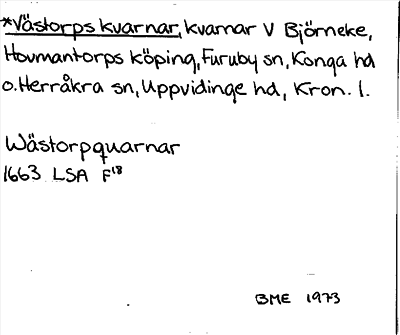 *Västorps kvarnar, kvarnar V Björneke,
Hovmantorps köping, Furuby sn, Konga hd
o. Herråkra sn, Uppvidinge hd, Kron. l.
Wästorpquarnar
1663 LSA F¹⁸
BME 1973